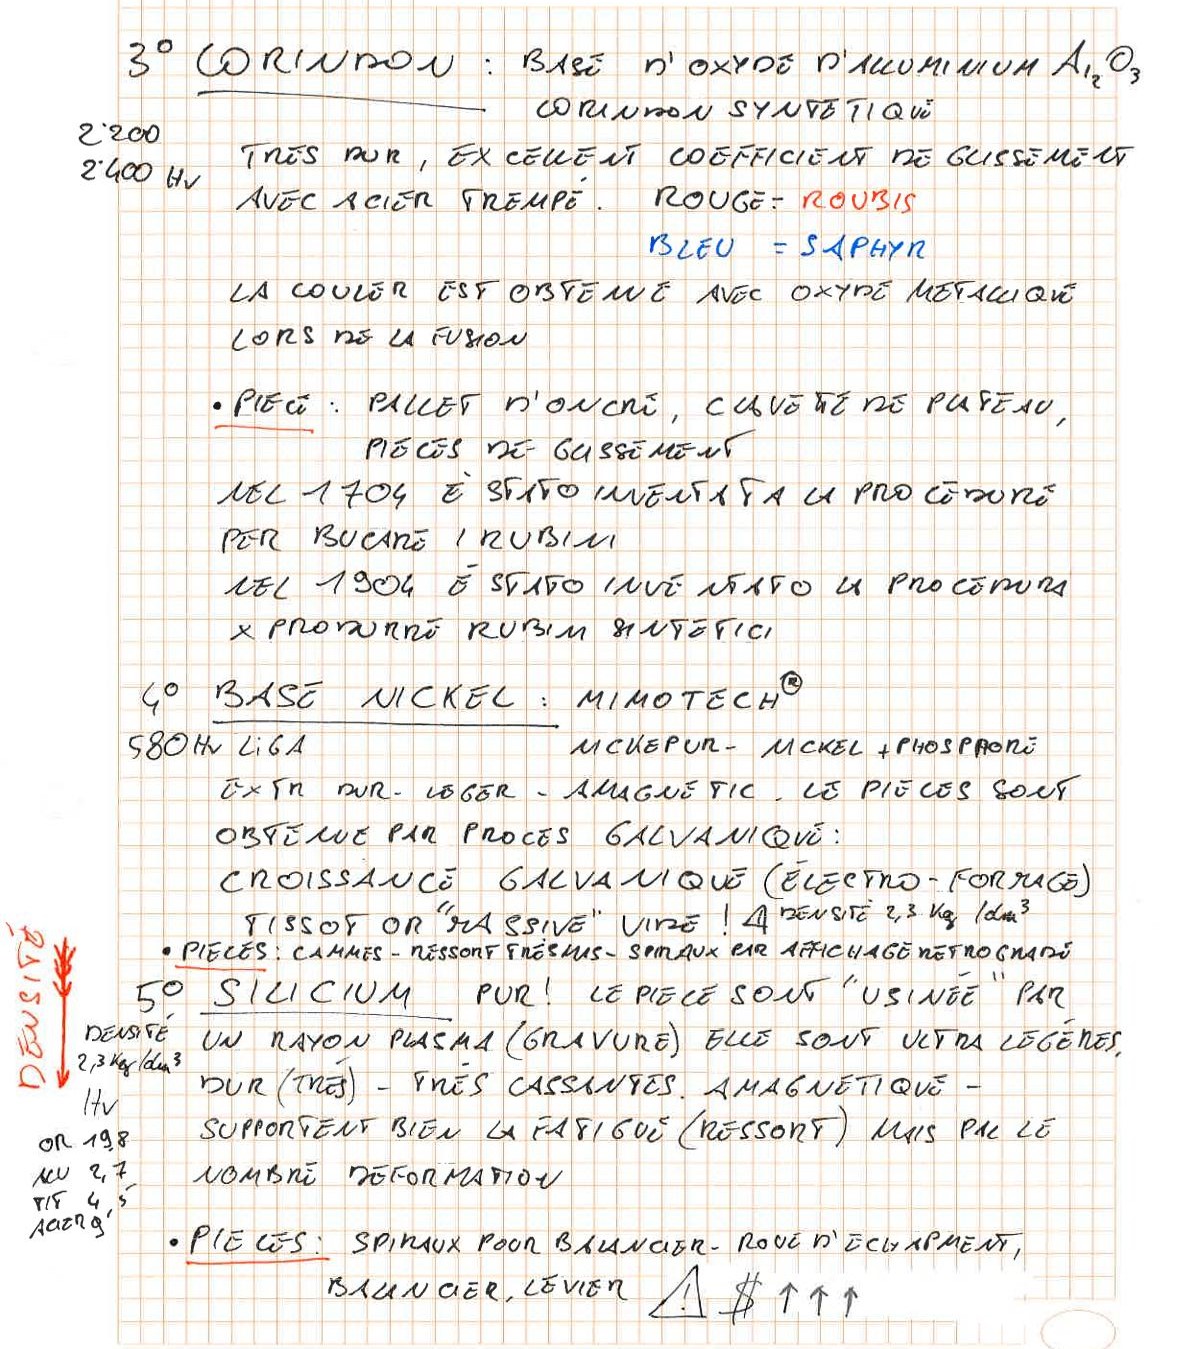 3° CORINDON : BASE D'OXYDE D'ALLUMINIUM Al2O3
CORINDON SYNTETIQUE
2'200
2'400 HV
TRES DUR, EXCELLENT COEFFICIENT DE GLISSEMENT
AVEC ACIER TREMPÉ. ROUGE = ROUBIS
BLEU = SAPHYR
LA COULER EST OBTENUE AVEC OXYDE METALLIQUE
LORS DE LA FUSION
• PIECE : PALLET D'ONCRE, CLAVETTE DE PLATEAU,
PIECES DE GLISSEMENT
NEL 1704 È STATO INVENTATA LA PROCEDURE
PER BUCARE I RUBINI
NEL 1904 È STATO INVENTATO LA PROCEDURA
X PRODURRE RUBINI SINTETICI
4° BASE NICKEL : MIMOTECH®
580 HV LIGA NICKEPUR - NICKEL + PHOSPHORE
EXTR DUR - LEGER - AMAGNETIC. LE PIECES SONT
OBTENUE PAR PROCES GALVANIQUE :
CROISSANCE GALVANIQUE (ÉLECTRO-FORMAGE)
TISSOT OR "MASSIVE" VIDE ! ⚠ DENSITÉ 2,3 Kg/dm³
• PIECES : CAMMES - RESSORT - SPIRAUX PAR AFFICHAGE RETROGRADE
DENSITÉ
5° SILICIUM PUR! LE PIECE SONT "USINÉE" PAR
UN RAYON PLASMA (GRAVURE) ELLE SONT ULTRA LEGÉRES,
DENSITÉ
2,3 Kg/dm³
DUR (TRÉS) - TRÉS CASSANTES. AMAGNETIQUE -
HV
SUPPORTENT BIEN LA FATIGUE (RESSORT) MAIS PAS LE
OR 19,8
ALU 2,7
TIT 4,5
ACIER 9
NOMBRE DEFORMATION
• PIECES : SPIRAUX POUR BALANCIER - ROUE D'ECHAPMENT,
BALANCIER, LEVIER ⚠ $ ↑ ↑ ↑